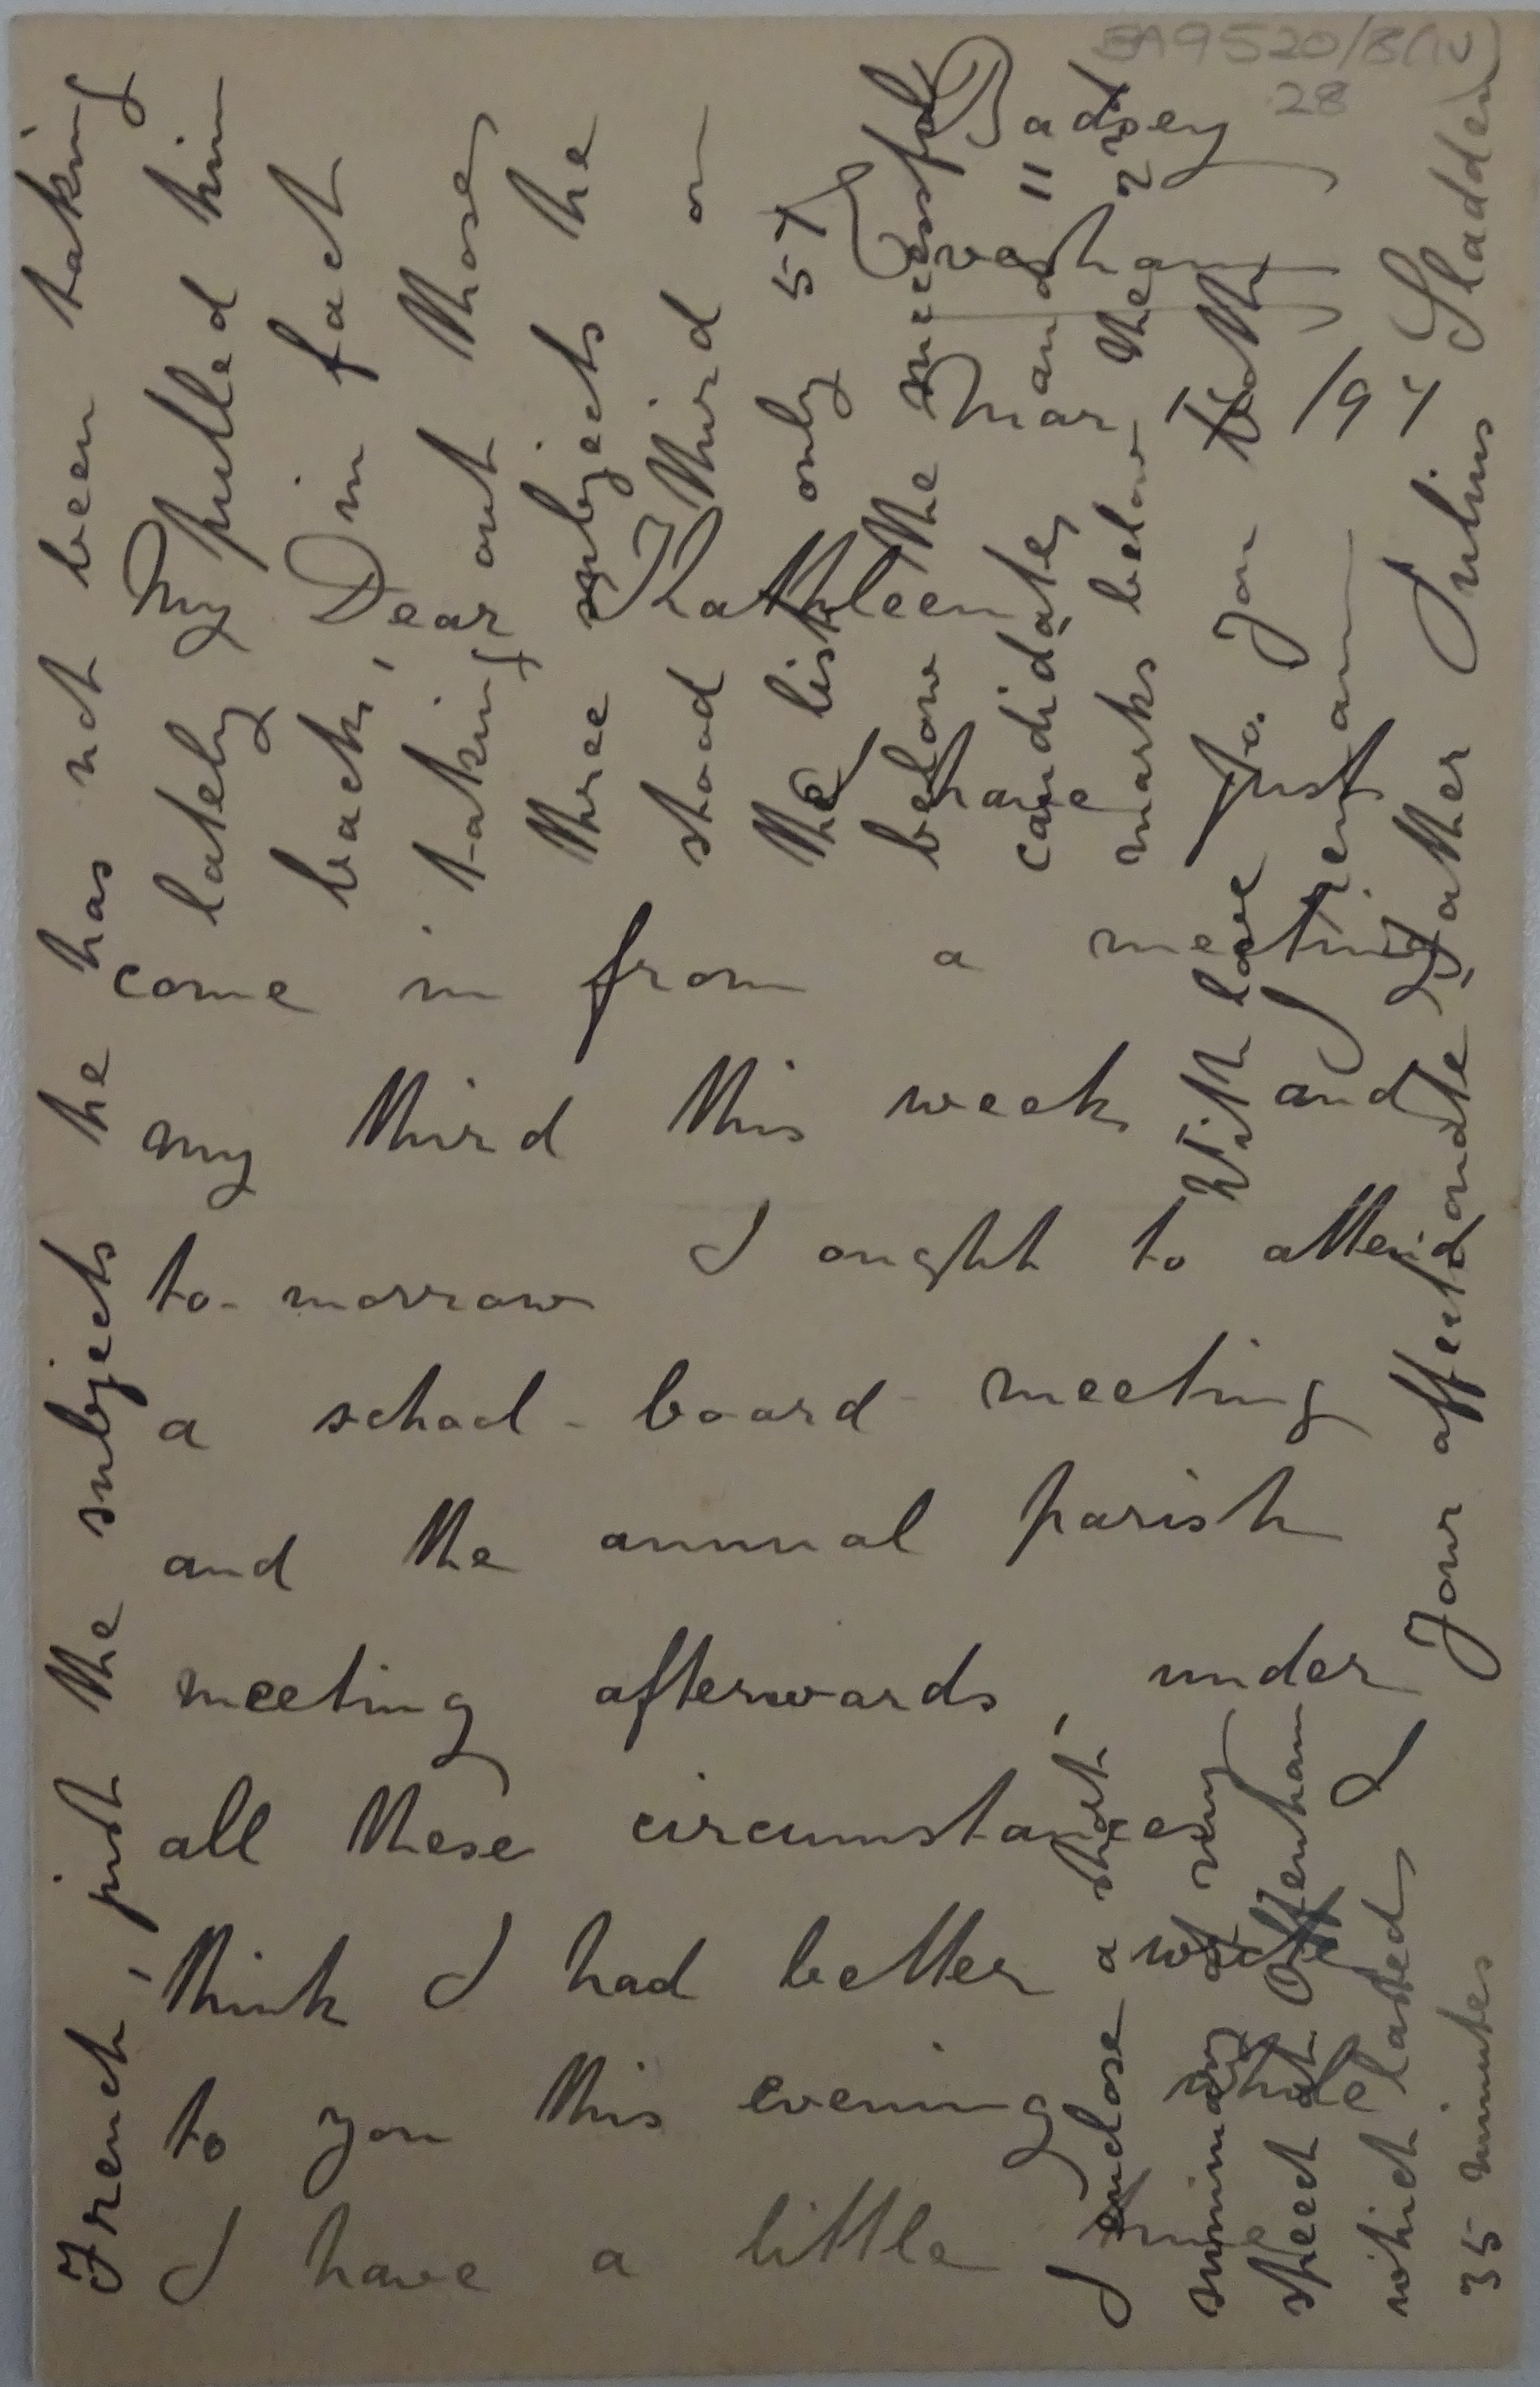 BA9520/8(iv)
28
Badsey
Evesham
Mar
My Dear Kathleen
I have just
come in from a meeting
my third this week and
to-morrow I ought to attend
a school-board meeting
and the annual parish
meeting afterwards, under
all these circumstances I
think I had better write
to you this evening while
I have a little time
French, just the subjects he has not been taking
lately pulled him
back, in fact
taking out those
three subjects he
stood third on
the list only 57
below the successful
candidate, and 11
marks below the 2nd
With love to you both
I remain
Your affectionate Father Julius Sladden
I enclose a short
summary of my
speech at Offenham
which lasted
35 minutes